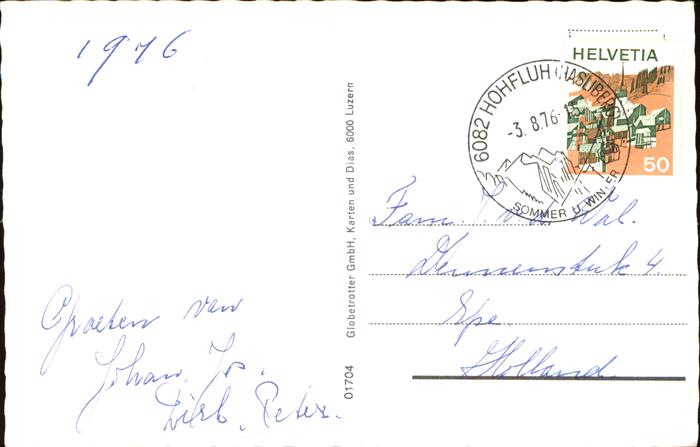 1976
HELVETIA
50
6082 HOHFLUH (HASLIBERG)
-3.8.76-15
SOMMER U. WINTER
Globetrotter GmbH, Karten und Dias, 6000 Luzern
01704
Fam. J. v.d. Wal.
Dennenstuk 4.
Epe.
Holland.
Groeten van
Johan, Jos.
Dirk, Peter.